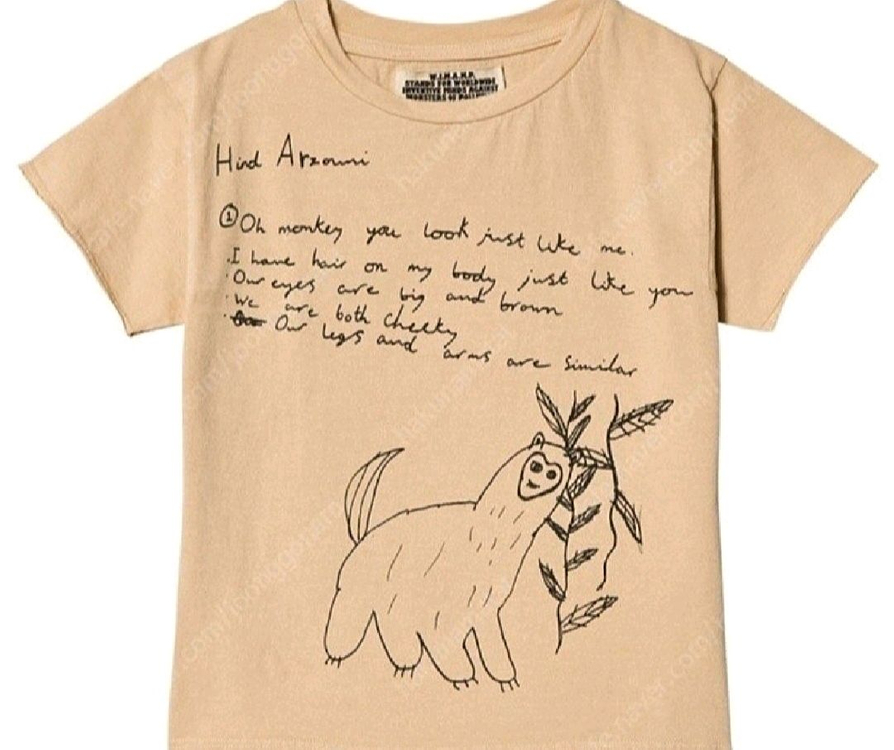 W.I.M.A.M.P.
STANDS FOR WORLDWIDE
INVENTIVE MINDS AGAINST
MONSTERS OF
Hind Arzouni
① Oh monkey you look just like me.
. I have hair on my body just like you
. Our eyes are big and brown
. We are both cheeky
. Our legs and arms are similar